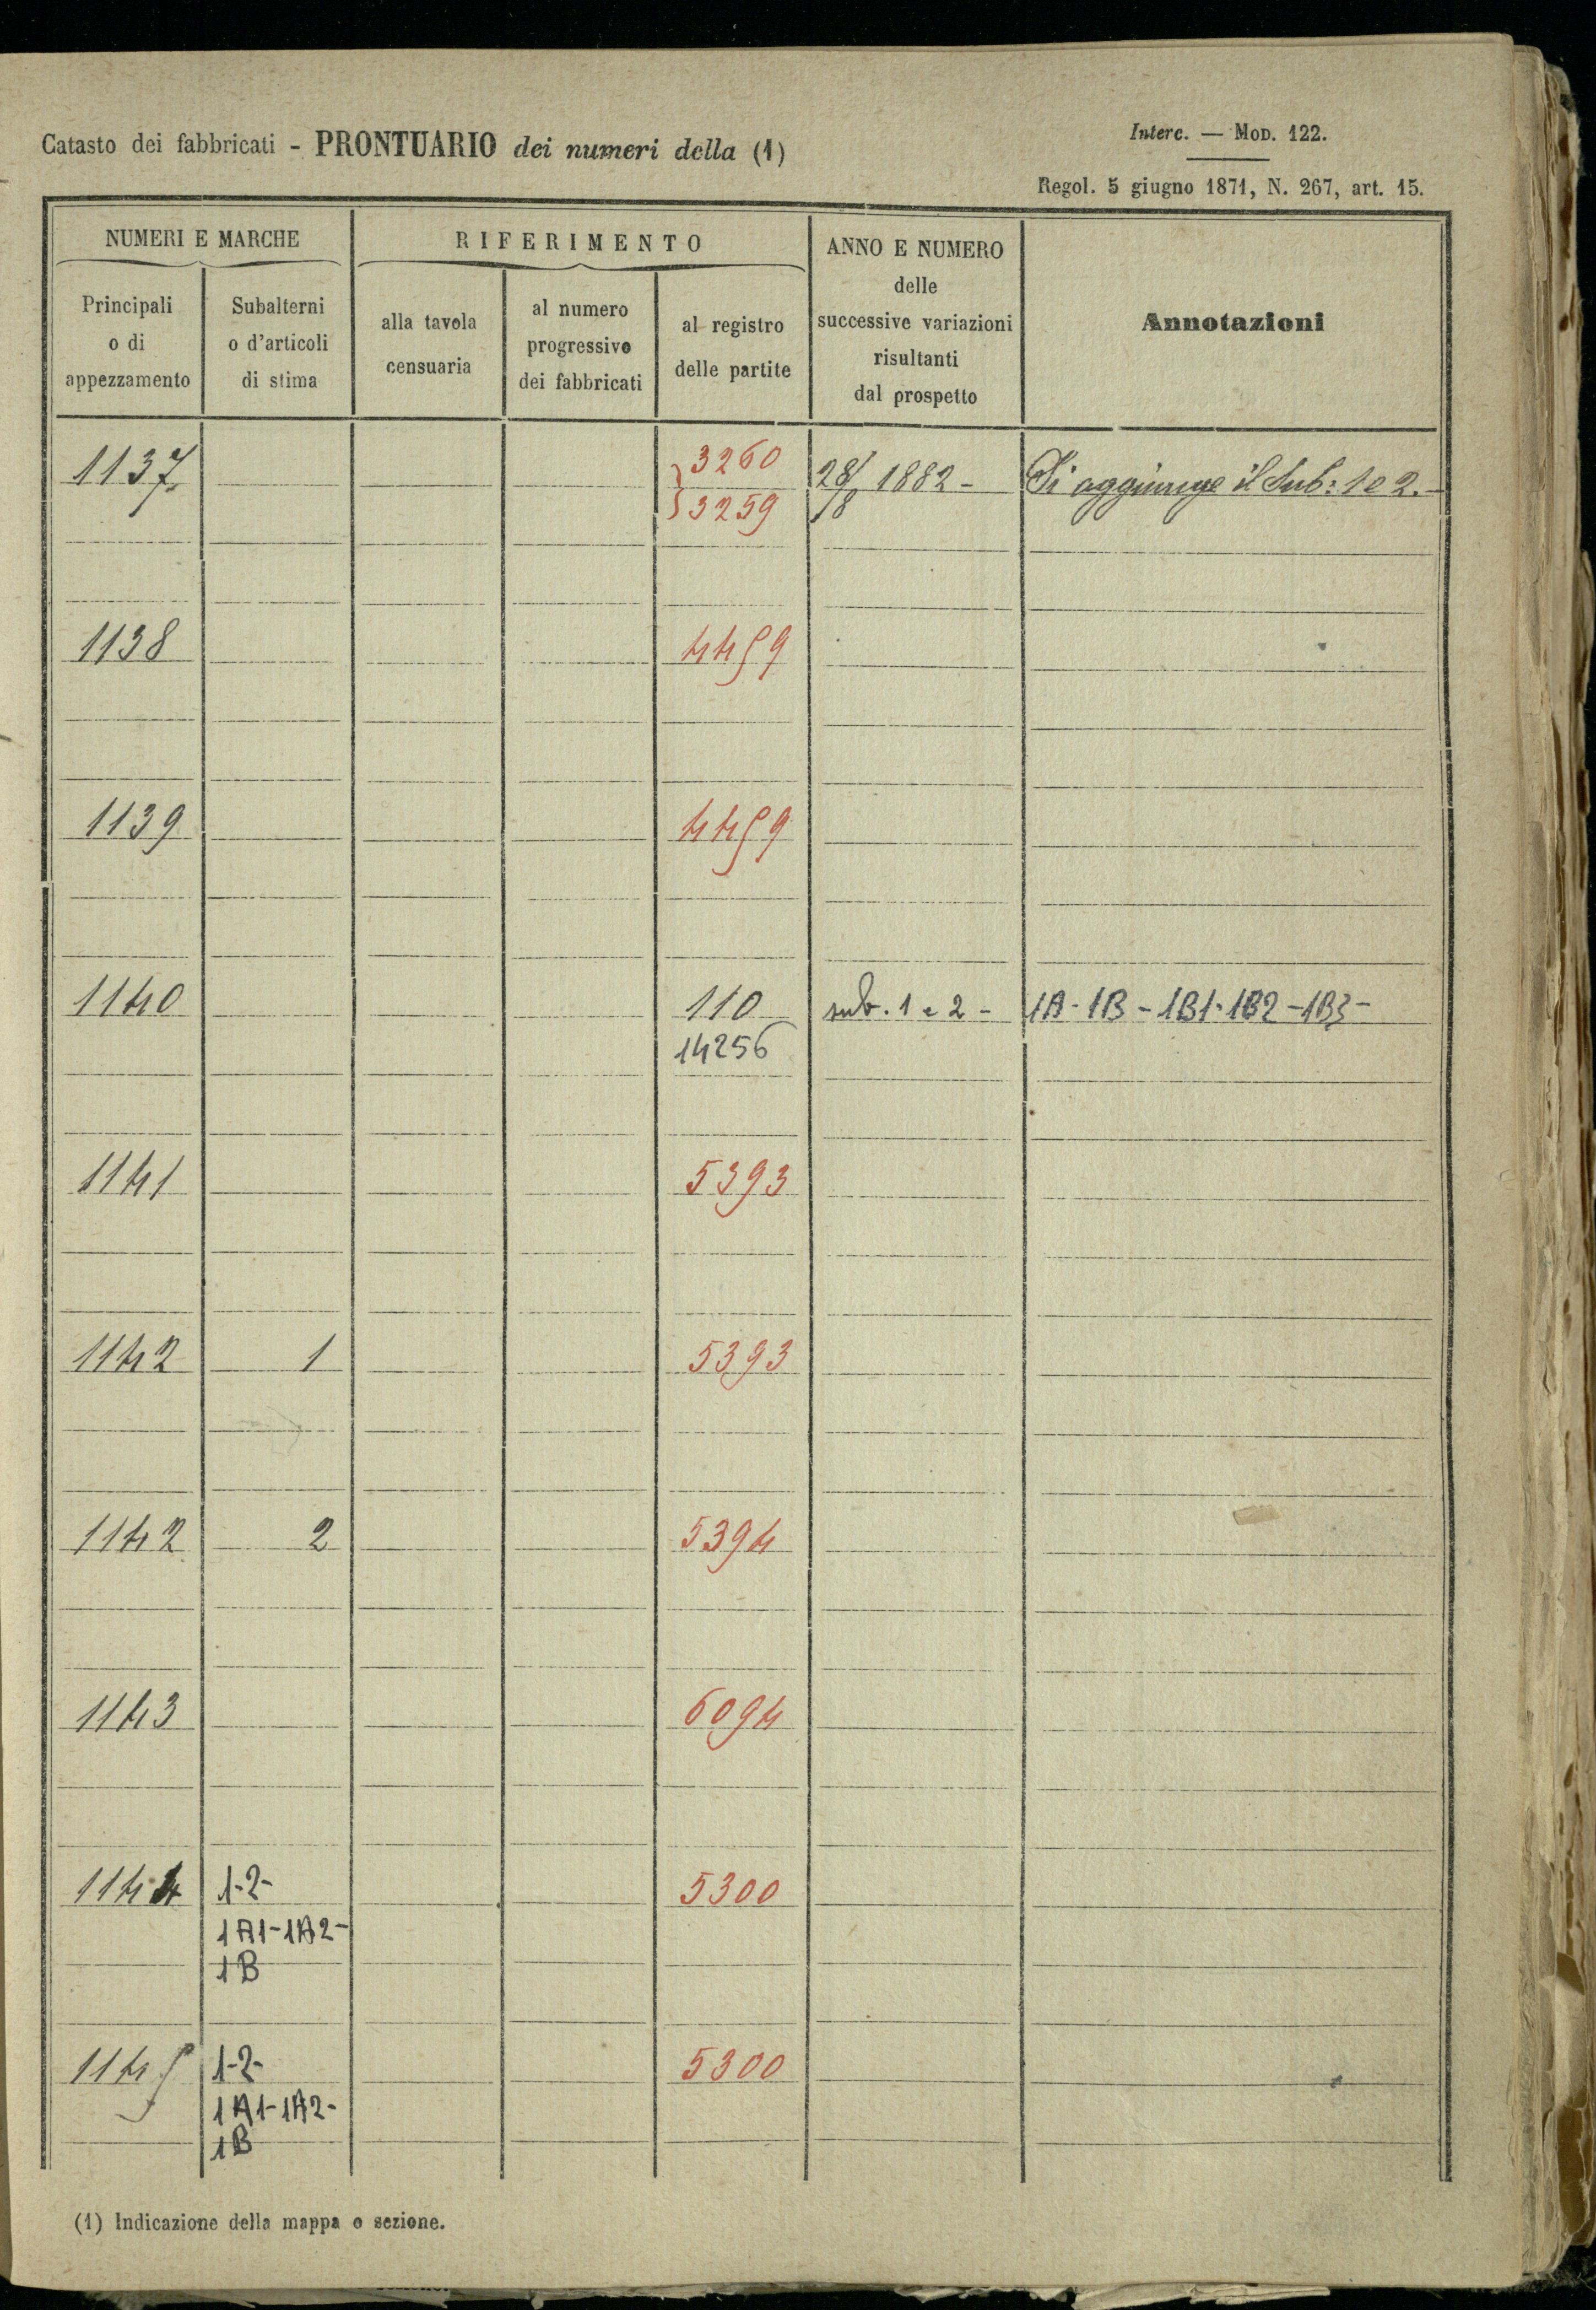 Catasto dei fabbricati - PRONTUARIO dei numeri della (1)
Interc. — Mod. 122.
Regol. 5 giugno 1871, N. 267, art. 15.
NUMERI E MARCHE
RIFERIMENTO
ANNO E NUMERO
delle
successive variazioni
risultanti
dal prospetto
Annotazioni
Principali
o di
appezzamento
Subalterni
o d'articoli
di stima
alla tavola
censuaria
al numero
progressivo
dei fabbricati
al registro
delle partite
1137 3260 28/8 1882 - Si aggiunge il Sub: 1 e 2.-
3259
1138 4459
1139 4459
1140 110 sub. 1 e 2 - 1A - 1B - 1B1 - 1B2 - 1B3 -
14256
1141 5393
1142 1 5393
1142 2 5394
1143 6094
1144 1-2- 5300
1A1-1A2-
1B
1145 1-2- 5300
1A1-1A2-
1B
(1) Indicazione della mappa o sezione.